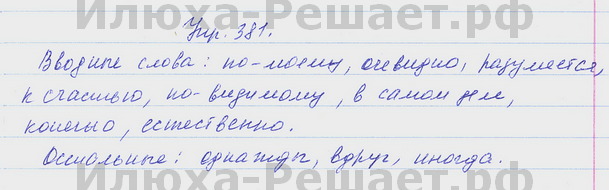 Илюха-Решает.рф
Упр. 381.
Вводные слова: по-моему, очевидно, разумеется,
к счастью, по-видимому, в самом деле,
конечно, естественно.
Остальные: однажды, вдруг, иногда.
Илюха-Решает.рф